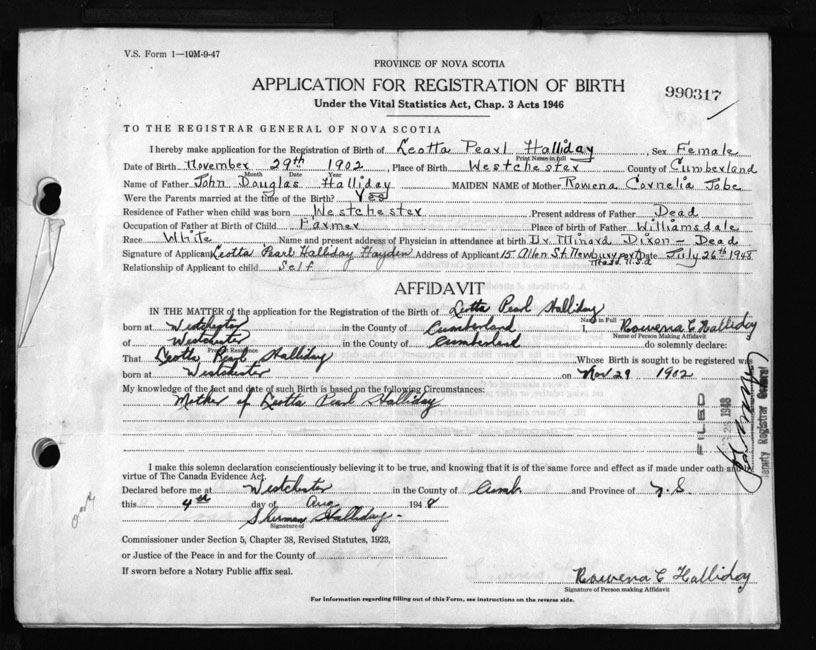 V.S. Form 1—10M-9-47
PROVINCE OF NOVA SCOTIA
APPLICATION FOR REGISTRATION OF BIRTH
990317
Under the Vital Statistics Act, Chap. 3 Acts 1946
TO THE REGISTRAR GENERAL OF NOVA SCOTIA
I hereby make application for the Registration of Birth of Leotta Pearl Halliday, Sex Female
Print Names in full
Date of Birth November 29th 1902, Place of Birth Westchester County of Cumberland
Month Date Year
Name of Father John Douglas Halliday MAIDEN NAME of Mother Rowena Cornelia Jobe
Were the Parents married at the time of the Birth? Yes
Residence of Father when child was born Westchester Present address of Father Dead
Occupation of Father at Birth of Child Farmer Place of birth of Father Williamsdale
Race White Name and present address of Physician in attendance at birth Dr. Minard Dixon - Dead
Signature of Applicant Leotta Pearl Halliday Hayden Address of Applicant 15 Allen St. Newburyport Date July 26th 1948
Mass. U.S.A
Relationship of Applicant to child Self
AFFIDAVIT
IN THE MATTER of the application for the Registration of the Birth of Leotta Pearl Halliday
Name in Full
born at Westchester in the County of Cumberland I, Rowena C Halliday
Name of Person Making Affidavit
of Westchester in the County of Cumberland do solemnly declare:
Present Residence
That Leotta Pearl Halliday Whose Birth is sought to be registered was
born at Westchester on Nov 29 1902
My knowledge of the fact and date of such Birth is based on the following Circumstances:
Mother of Leotta Pearl Halliday
FILED
1948
Deputy Registrar General
I make this solemn declaration conscientiously believing it to be true, and knowing that it is of the same force and effect as if made under oath and
virtue of The Canada Evidence Act.
Declared before me at Westchester in the County of Cumb. and Province of N.S.
this 4th day of Aug 1948
Sherman Halliday -
Signature of
Commissioner under Section 5, Chapter 38, Revised Statutes, 1923,
or Justice of the Peace in and for the County of
If sworn before a Notary Public affix seal.
Rowena C Halliday
Signature of Person making Affidavit
For Information regarding filling out of this Form, see instructions on the reverse side.